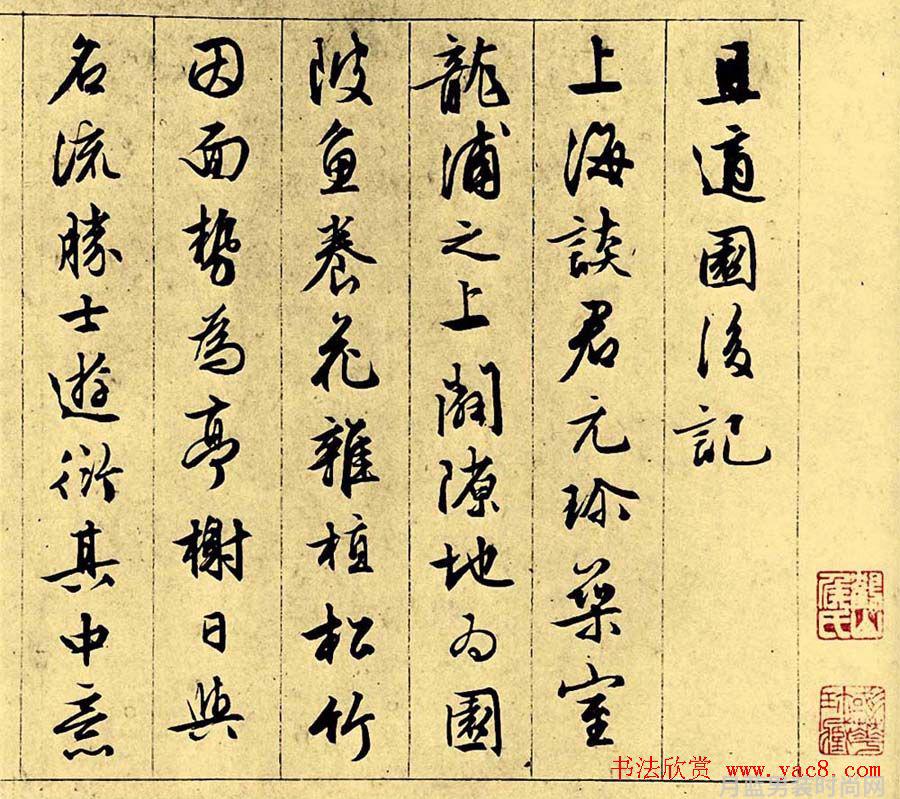 且適園後記
上海談君元珍築室
龍浦之上闢隙地為園
陂魚養花雜植松竹
因面勢為亭榭日與
名流勝士遊衍其中意
书法欣赏 www.yac8.com
月蓝男装时尚网